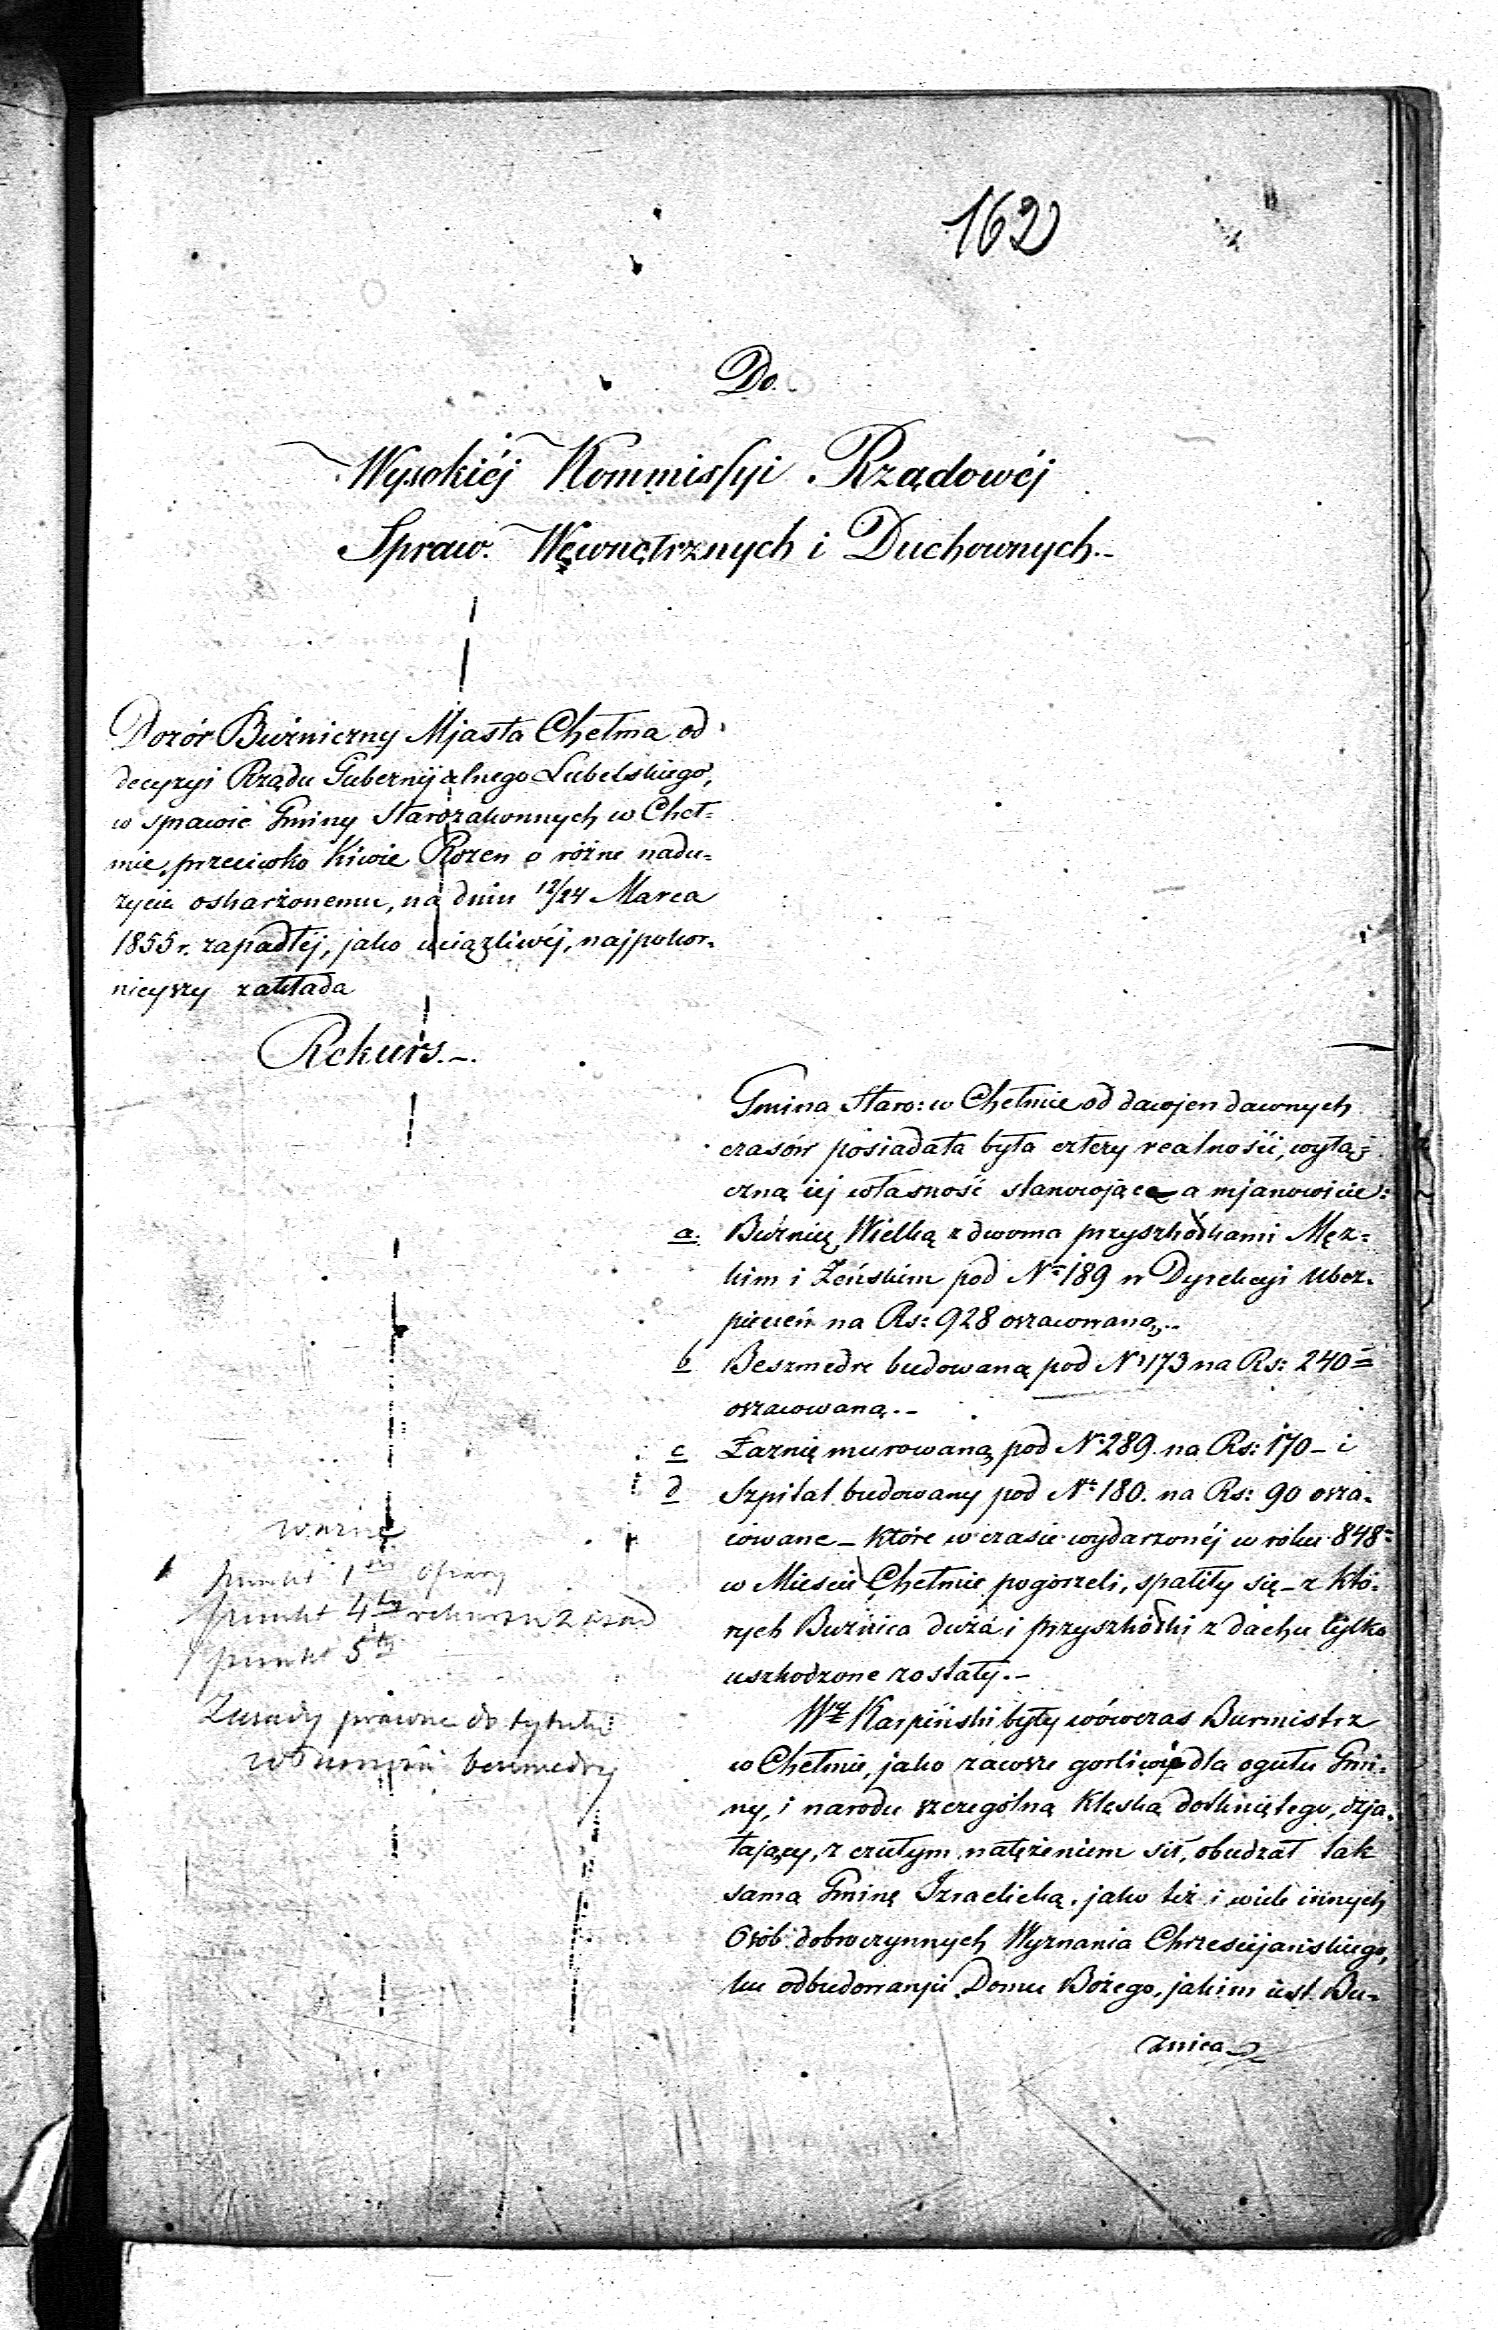 162
Do
Wysokiéj Kommissyi Rządowéj
Spraw. Wewnętrznych i Duchownych.-
Dozór Bużniczny Mjasta Chełma od
decyzyi Rządu Gubernijalnego Lubelskiego,
w sprawie Gminy Starozakonnych w Cheł=
mie, przeciwko Kiwie Rozen o różne nadu=
życia oskarżonemu, na dniu 12/24 Marca
1855 r. zapadłéj, jako uciążliwéj, najpokor-
nieyszy zakłada
Rekurs.-
Gmina Staro: w Chełmie od dawjen dawnych
czasów posiadała była cztery realności, wyłą=
czną iéj własność stanowiące a mjanowicie:
a. Bużnicę Wielką z dwoma przyszkółkami Męz=
kim i Żeńskim pod No 189 w Dyrekcyi Ubez-
pieczeń na Rs: 928 oszacowaną.-
b Beszmedre budowaną pod No 173 na Rs: 240
oszacowaną.-
c Łaznię murowaną pod No 289 na Rs: 170 - i
d Szpital budowany pod No 180. na Rs: 90 osza-
cowane - które w czasie wydarzonéj w roku 848
w Mieście Chełmie pogorzeli, spaliły się - z któ-
rych Bużnica duża i przyszkółki z dachu tylko
uszkodzone zostały.-
ważne
punkt 1
punkt 4
punkt 5
Zasady prawne do tytułu
Karpiński były wówczas Burmistrz
w Chełmie, jako zawsze gorliwie dla ogułu Gmi-
ny, i narodu szczególną klęską dotkniętego, dzja-
łający, z czułym natężeniem sił, obudzał tak
samą Gminę Izraelicką, jako też i wiele innych
Osób dobroczynnych Wyznania Chrzescijańskiego,
ku odbudowanju Domu Bożego, jakim jest Bu-
żnica